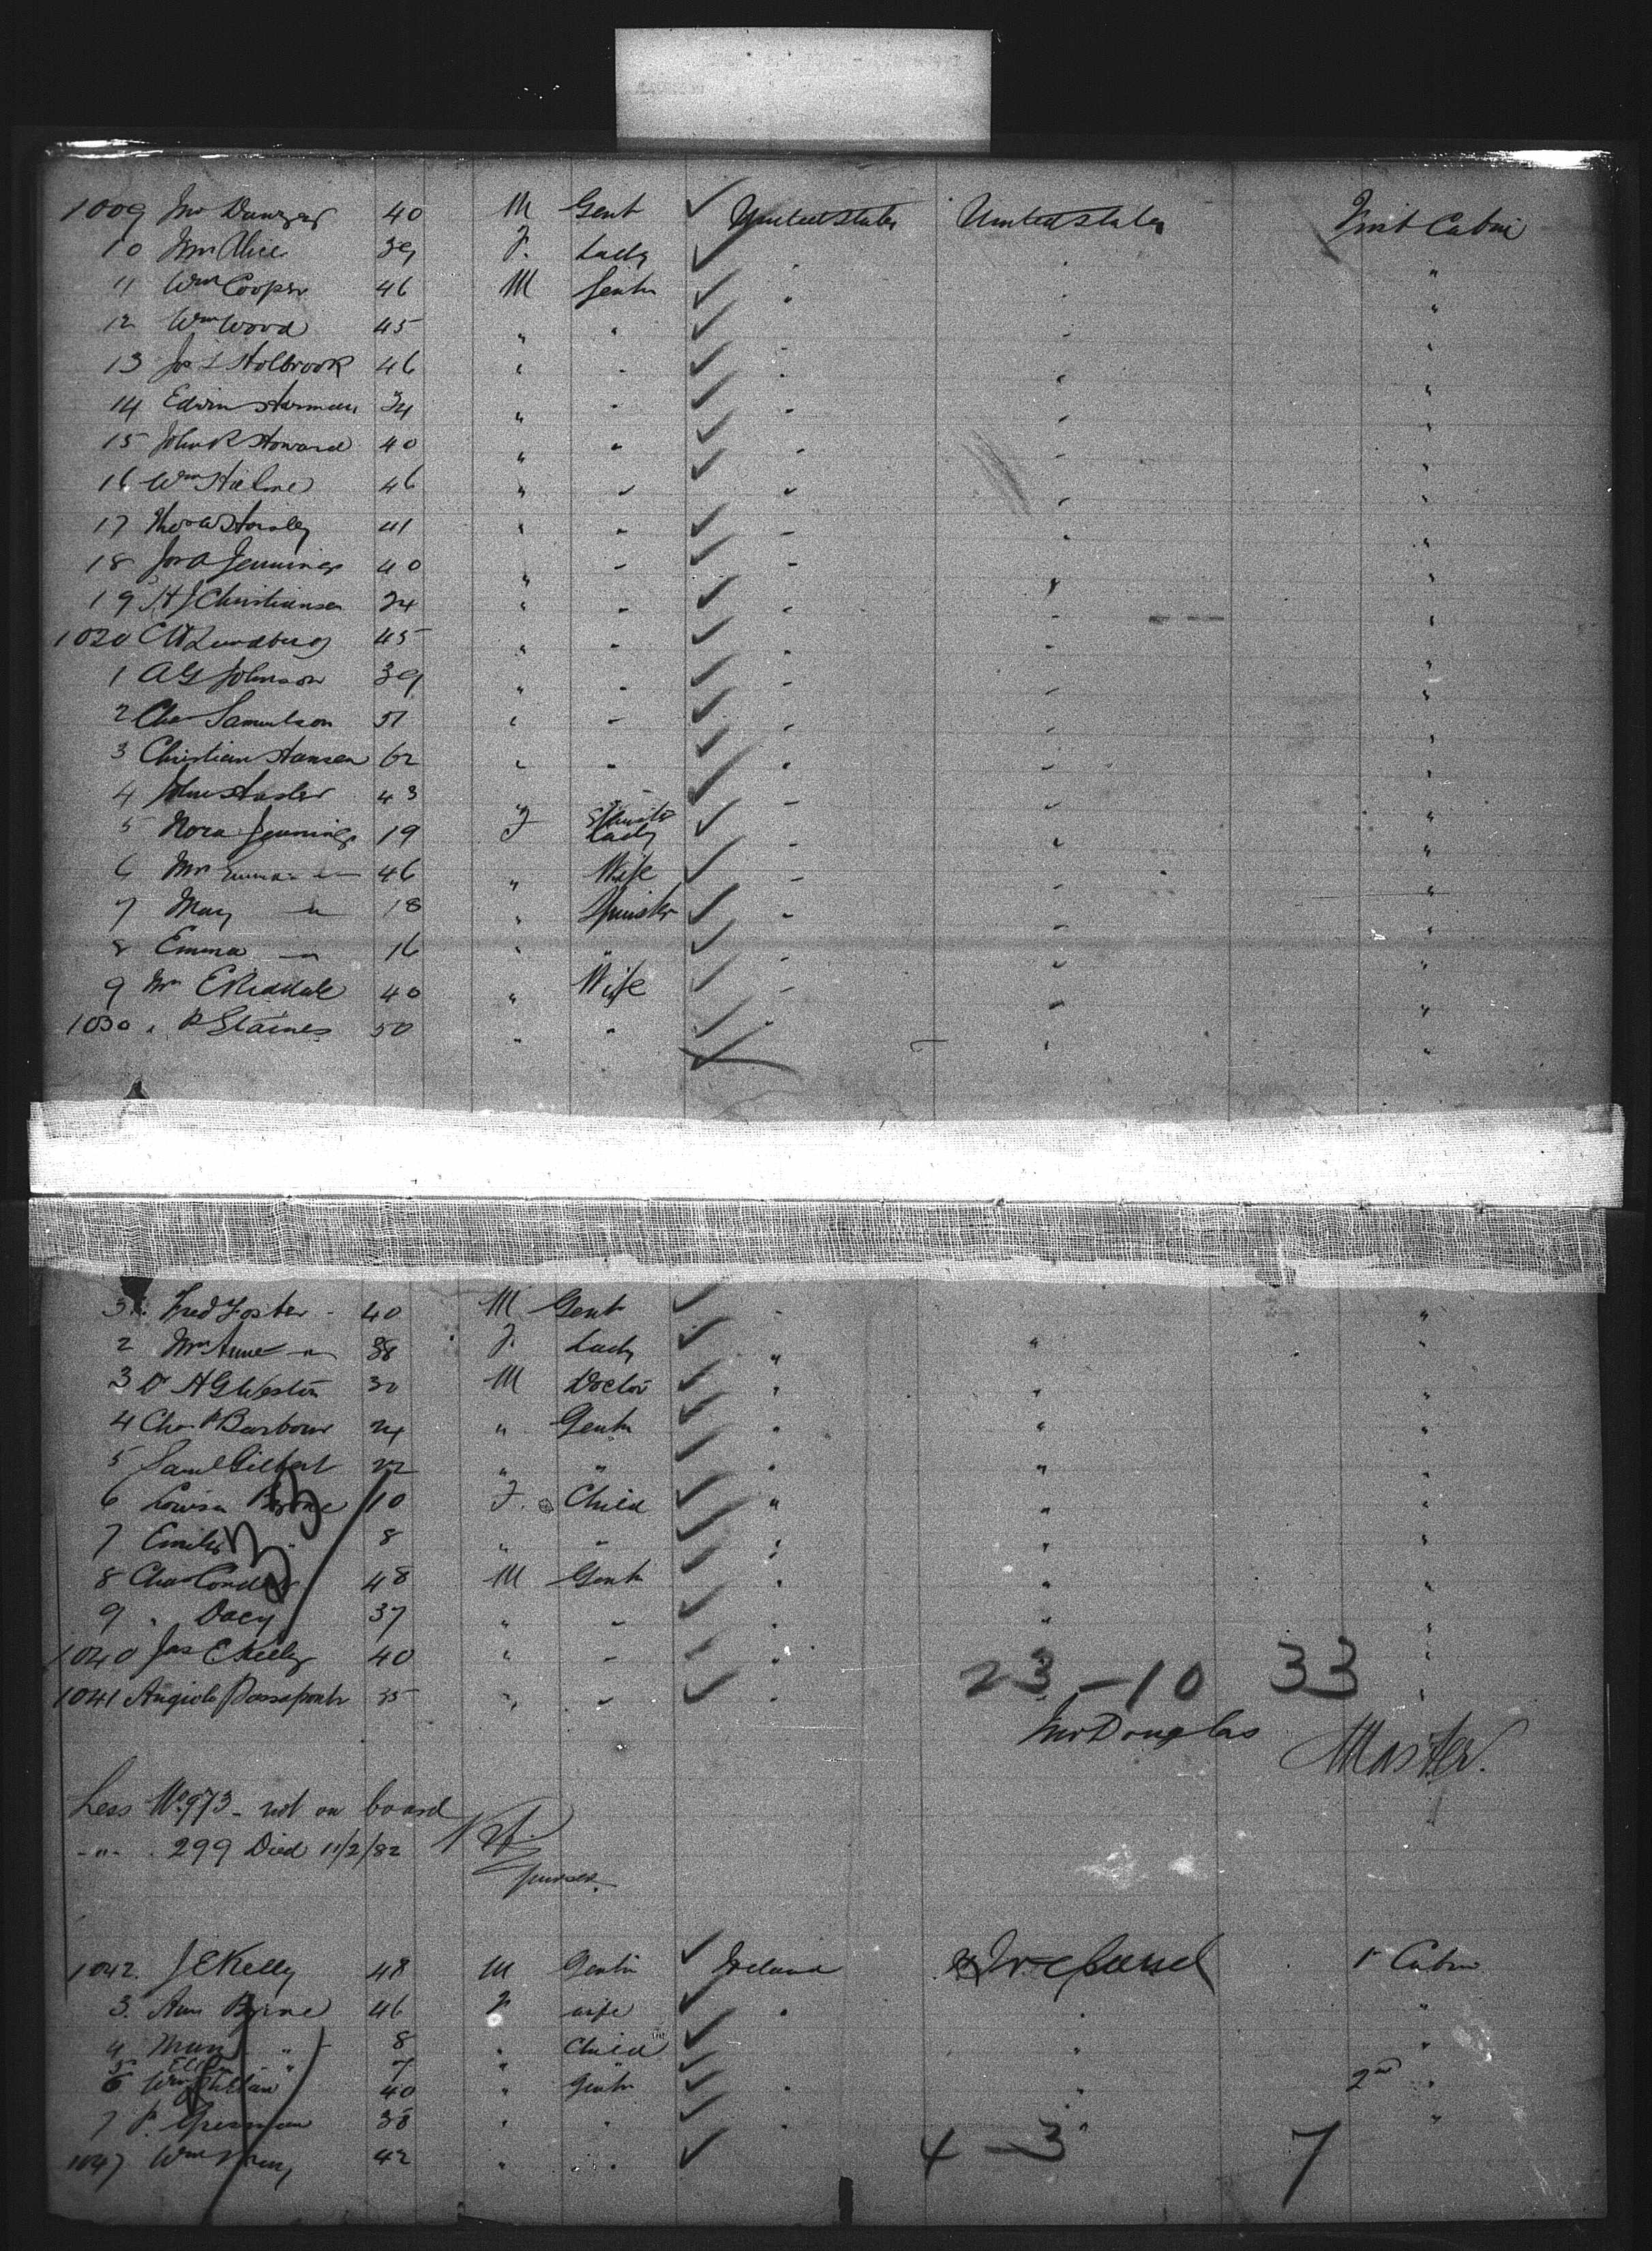 1009 Jno 40 M Gent United States United States First Cabin
10 Mrs Alice 39 F. Lady " " "
11 Wm Cooper 46 M Gentn " " "
12 Wm Wood 45 " " " " "
13 Jos L Holbrook 46 " " " " "
14 Edwin Harman 34 " " " " "
15 John R Howard 40 " " " " "
16 Wm 46 " " " " "
17 Thos W Horsley 41 " " " " "
18 Jos A Jennings 40 " " " " "
19 H J Christiansen 24 " " " " "
1020 C A Lundberg 45 " " " " "
1 A G Johnson 39 " " " " "
2 Chas Samuelson 51 " " " " "
3 Christian Hansen 62 " " " " "
4 John Hasler 43 " " " " "
5 Nora Jennings 19 F Lady " " "
6 Mrs Emma -"- 46 " Wife " " "
7 May -"- 18 " Spinster " " "
8 Emma -"- 16 " " " " "
9 Mrs E 40 " Wife " " "
1030 " P Staines 50 " " " " "
Fred Foster 40 M Gent " "
2 Mrs Anne -"- 38 F. Lady " " "
3 Dr A G Weston 30 M Doctor " " "
4 Chas P Barbour 24 " Gentn " " "
5 Saml Gilbert 22 " " " " "
6 Louisa 10 F. Child " " "
7 Emily " 8 " " " " "
8 Chas 48 M Gentn " " "
9 " Dacy 37 " " " "
1040 Jas E Kelly 40 " " " "
23-10 33
1041 Angiolo Passaponti 35 " " " "
Jno Douglas Master.
Less No. 973 - not on board
-"- . 299 Died 11/2/82
Purser.
1042. J E Kelly 48 M Gentn Ireland Ireland 1st Cabin
3. Ann Byrne 46 F wife " " "
4 Mary " 8 " Child " "
5 Ellen " 7 " "
6 Wm 40 " Gentn " " 2nd "
7 P. 38 " " " " "
4-3 7
1047 Wm 42 " "